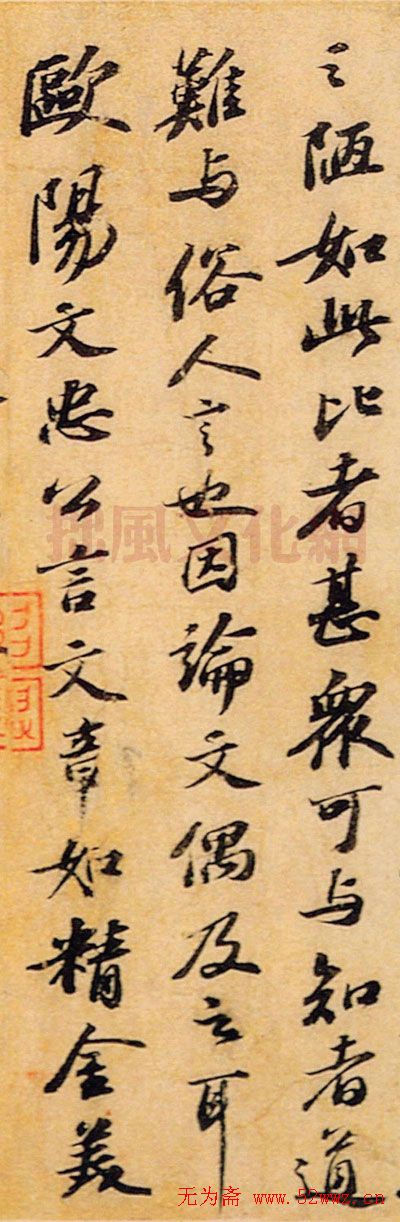 之陋如此比者甚衆可与知者道
難与俗人言也因論文偶及之耳
歐陽文忠公言文章如精金美
拙風文化網
无为斋 www.52wwz.cn